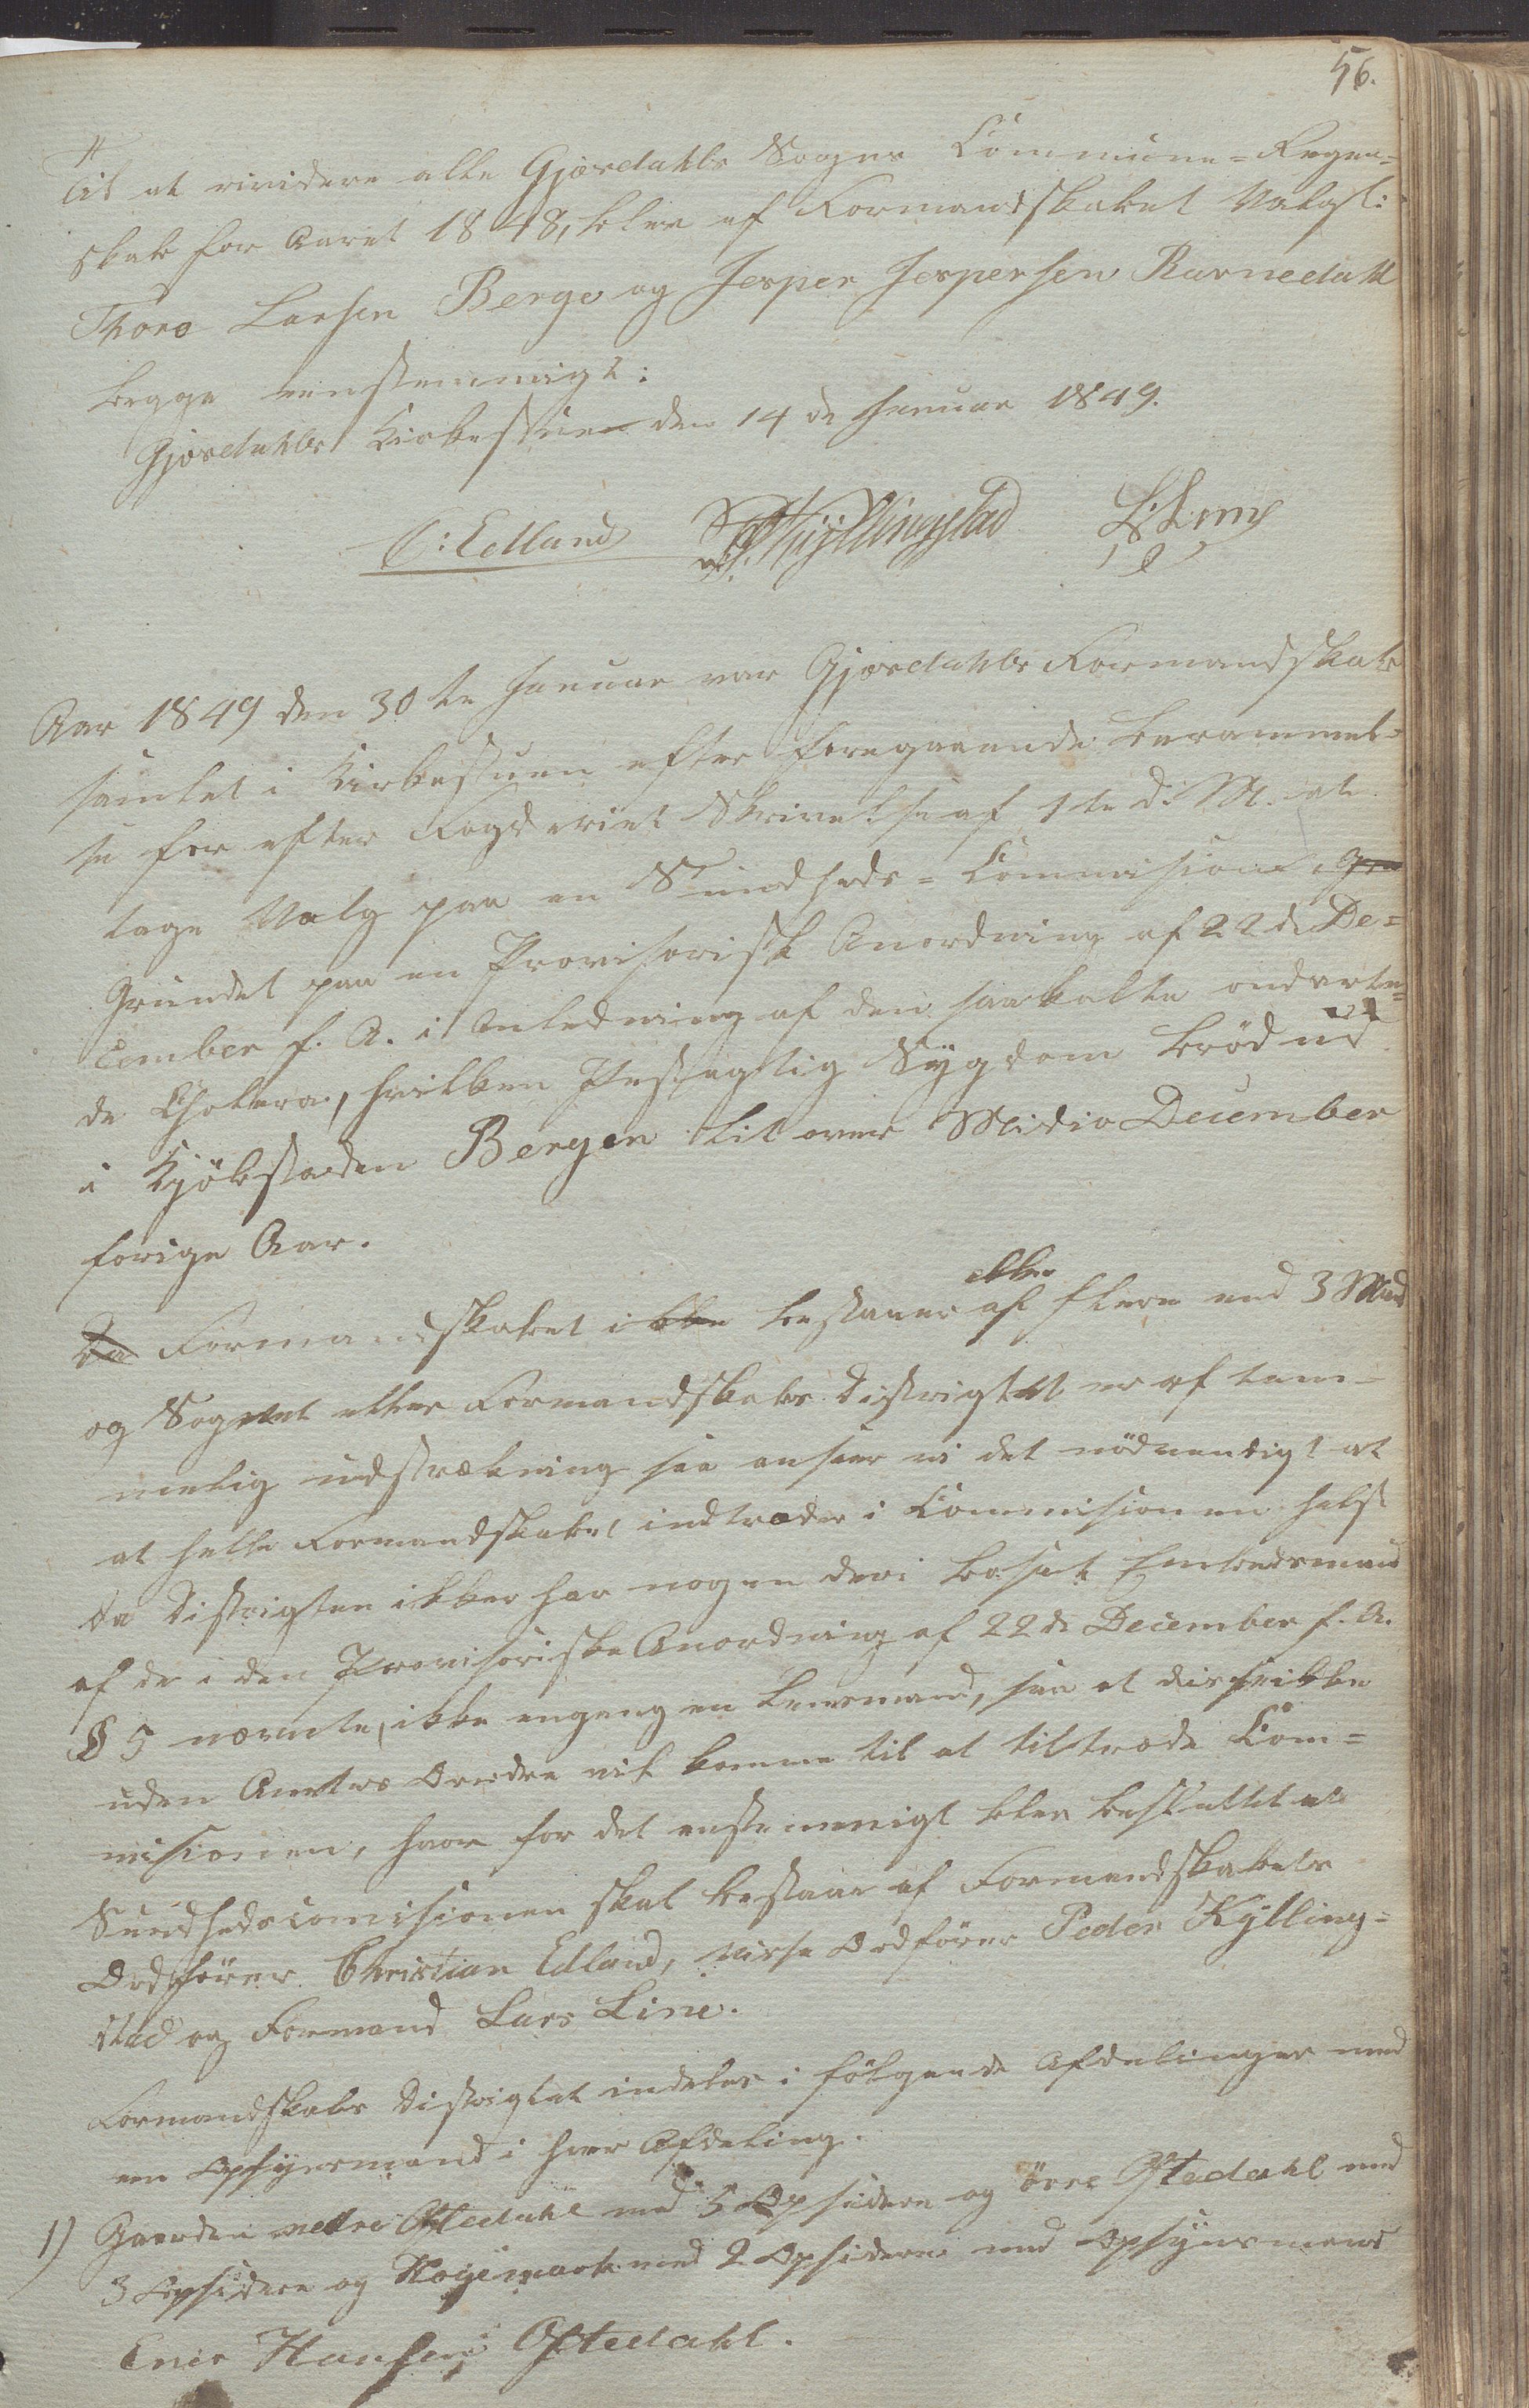 56.
Til at rividere alle Gjæsdahls Sogns Commune=Regn-
skab for Aaret 1848, blev af Formandskabet Valgt:
Thore Larsen Berge og Jesper Jespersen Ravnedahl
begge eenstemmigt.
Gjæsdahls Kirkestuen den 14de Januar 1849.
C: Edland P: Kÿllingstad L: Limi
Aar 1849 den 30te Januar var Gjæsdahls Formandskab
samlet i Kirkestuen efter foregaaende berammel-
se for efter Fogderiet Skrivelse af 1te d: M. at
tage Valg paa en Sundheds=Commision,
Grundet paa en Provisorisk Anordning af 22de De=
cember f. A. i Anledning af den saakalte ondarte=
de Cholera, hvilken Pestagtig Sÿgdom brød ud
i Kjøbstaden Bergen lit over Midio December
forige Aar.
Da Formandskabet ikke bestaaer ikke af flere end 3 Mænd
og Sognet eller Formandskabs Distrigtet er af tem-
melig udstrækning saa anseer vi det nødvendigt at
at hele Formandskabet indtræder i Commisionen helst
da Distrigtet ikke har nogen deri bosat Embedsmand
af de i den Provisoriske Anordning af 22de December f. A.
§ 5 nævnte, ikke engang en Lensmand, saa at disse ikke
uden Amtets Ordre vil komme til at tiltræde Com=
misionen, hvor for det enstemmigt blev besluttet at
Sundhedscomisionen skal bestaae af Formandskabets
Ordfører Christian Edland, Visse Ordfører Peder Kÿlling=
stad og Formand Lars Line.
Formandskabs Distrigtet indeles i følgende Afdelinger med
en Opsÿnsmand i hver Afdeling.
1) Gaarden nedre Oftedahl med 5 Opsidere og øvre Oftedahl med
3 Opsidere og Skogemark med 2 Opsidere med Opsÿnsmand
Ener Hansen Oftedahl.